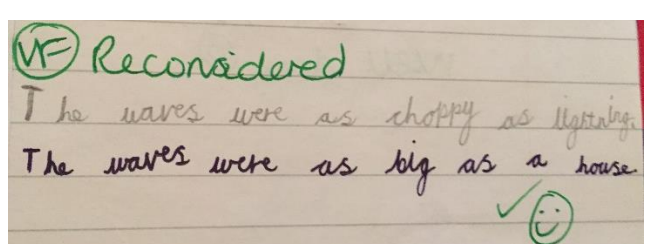 VF Reconsidered
The waves were as choppy as lightning.
The waves were as big as a house.